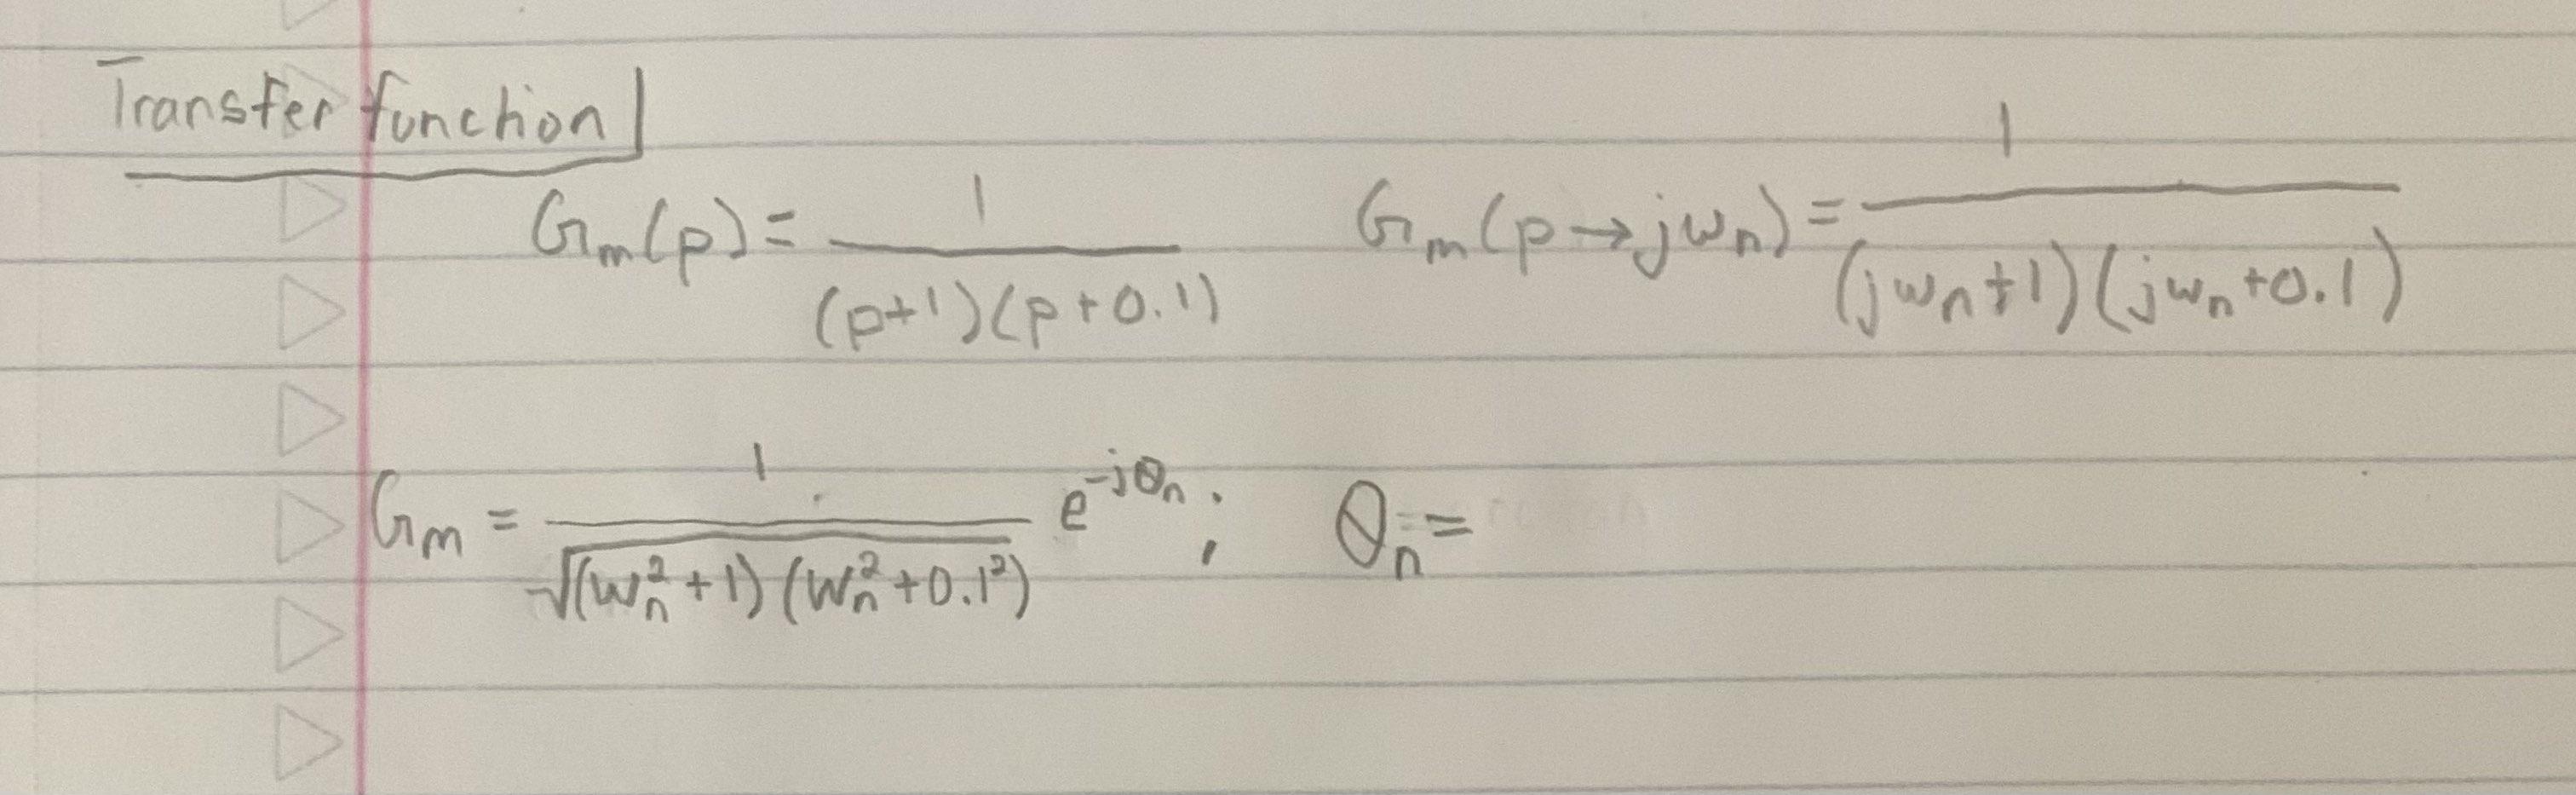 Transfer function
Gₘ(p) = 1 / ((p+1)(p+0.1))    Gₘ(p→jωₙ) = 1 / ((jωₙ+1)(jωₙ+0.1))
Gₘ = 1 / √((ωₙ²+1)(ωₙ²+0.1²)) e^(-jθₙ) ;    θₙ =